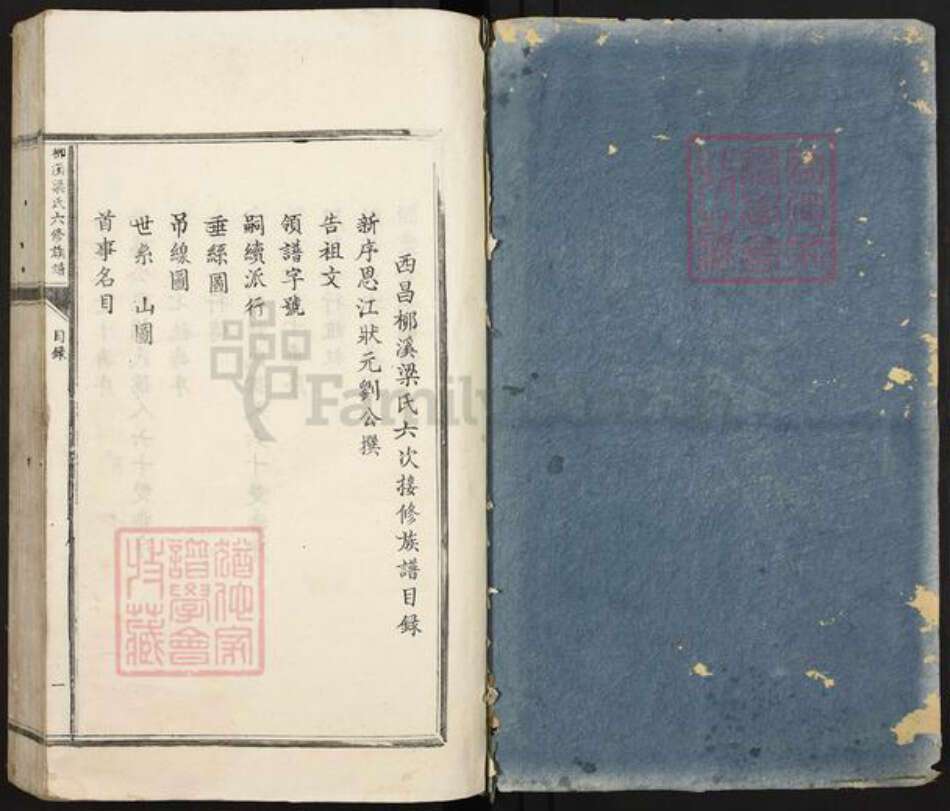 西昌栁溪梁氏六次接修族譜目録
新序恩江狀元劉公撰
告祖文
領譜字號
嗣續派行
垂絲圖
吊線圖
世系 山圖
首事名目
栁溪梁氏六修族譜
目録
一
猶他家
譜學會
收藏
FamilySearch